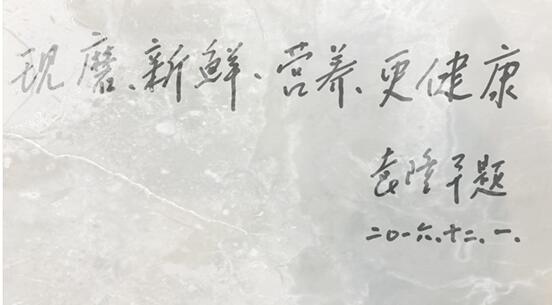 现磨、新鲜、营养、更健康
袁隆平题
二〇一六、十二、一、